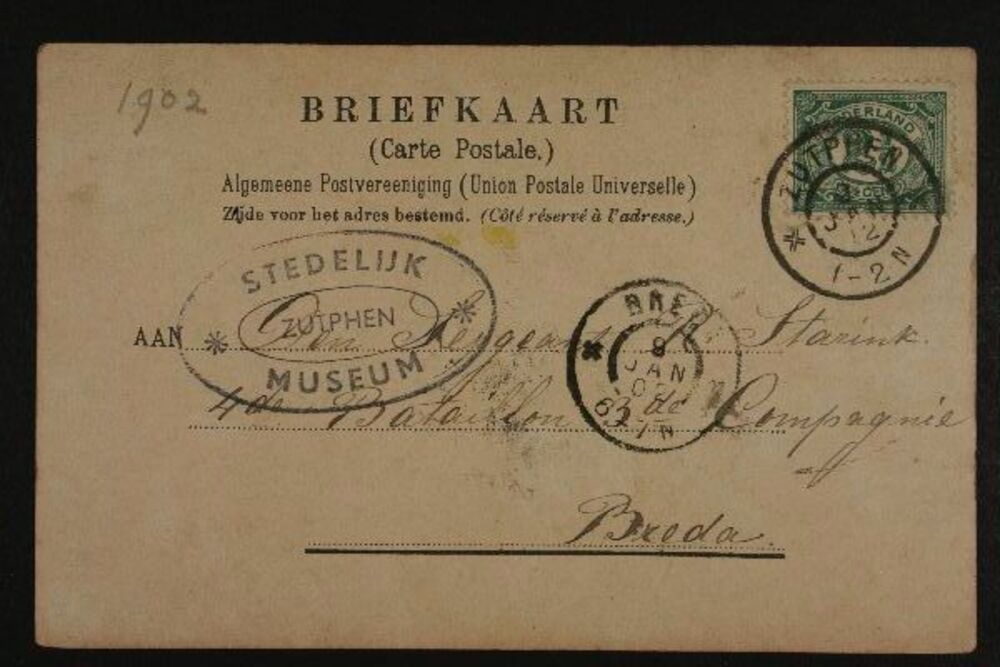 1902
BRIEFKAART
(Carte Postale.)
Algemeene Postvereeniging (Union Postale Universelle)
Zijde voor het adres bestemd. (Côté réservé à l'adresse.)
NEDERLAND
CENT
ZUTPHEN
JAN
1-2 N
STEDELIJK
ZUTPHEN
MUSEUM
BRED
8
JAN
N
AAN Den Sergeant Starink.
4de Bataillon 3de Compagnie
Breda.